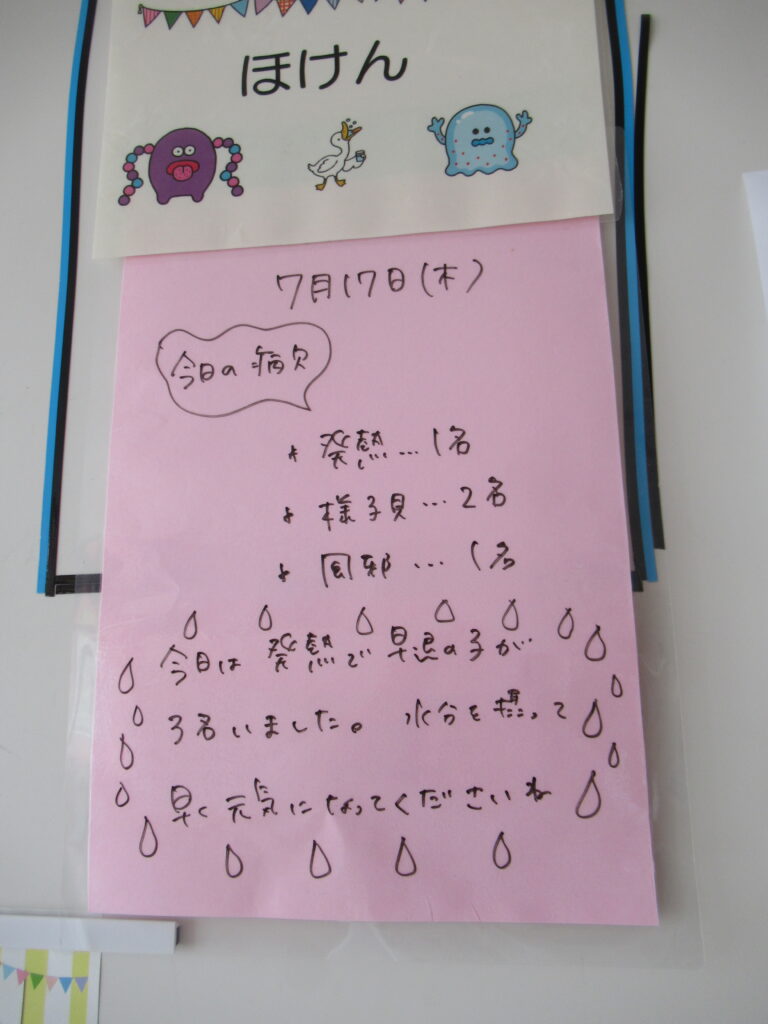 ほけん
7月17日(木)
今日の病欠
発熱…1名
様子見…2名
風邪…1名
今日は発熱で早退の子が
3名いました。水分を摂って
早く元気になってくださいね